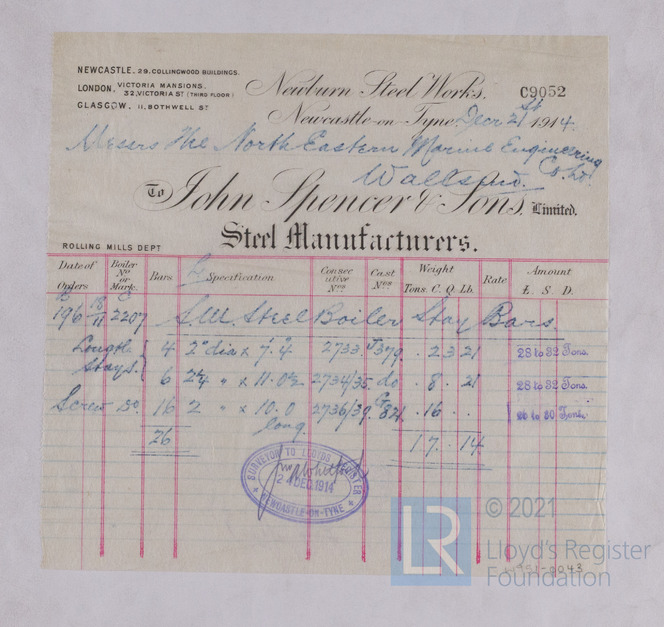 NEWCASTLE. 29. COLLINGWOOD BUILDINGS.
LONDON. VICTORIA MANSIONS. 32, VICTORIA ST (THIRD FLOOR)
GLASGOW. 11, BOTHWELL ST
Newburn Steel Works. C9052
Newcastle-on-Tyne, Decr 21st 1914.
Messrs The North Eastern Marine Engineering Co. Ld.
Wallsend.
To John Spencer & Sons, Limited.
Steel Manufacturers.
ROLLING MILLS DEPT
Date of Orders Boiler No or Mark. Bars Specification Consecutive Nos Cast Nos Weight Tons. C. Q. Lb. Rate Amount £. S. D.
196 18/11 2207 S.M. Steel Boiler Stay Bars.
Longtl Stays. 4 2" dia x 7. 4 2733. 379. . 2 3 21 28 to 32 Tons.
6 2¼ " x 11. 0½ 2734/35. do . 8 . 21 28 to 32 Tons.
Screw Do. 16 2 " x 10. 0 long. 2736/39. 821. . 16 . . 26 to 30 Tons.
26 17 . 14
SURVEYOR TO LLOYDS REGISTER
24 DEC. 1914
NEWCASTLE-ON-TYNE
LR © 2021
Lloyd's Register
Foundation